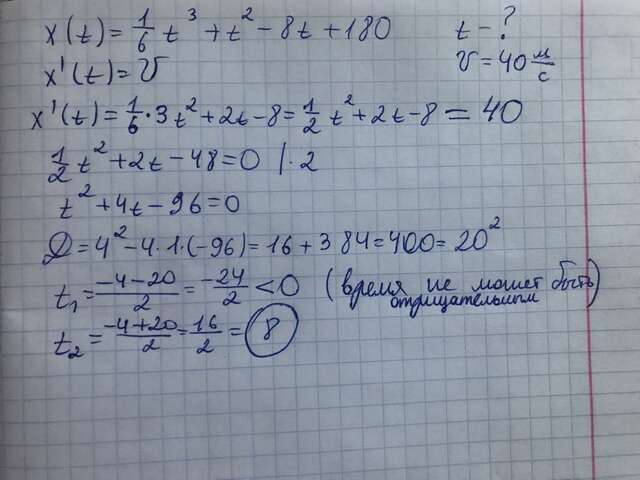 x(t) = 1/6 t³ + t² - 8t + 180 t - ?
x'(t) = V V = 40 м/с
x'(t) = 1/6 · 3t² + 2t - 8 = 1/2 t² + 2t - 8 = 40
1/2 t² + 2t - 48 = 0 | · 2
t² + 4t - 96 = 0
D = 4² - 4 · 1 · (-96) = 16 + 384 = 400 = 20²
t₁ = (-4 - 20)/2 = -24/2 < 0 (время не может быть отрицательным)
t₂ = (-4 + 20)/2 = 16/2 = 8